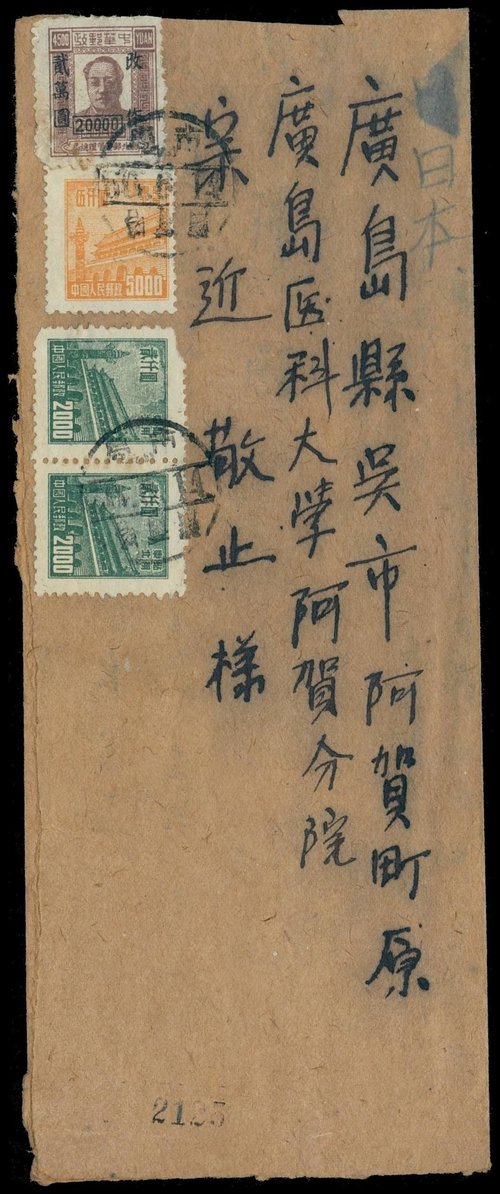 日本
廣島縣吳市阿賀町原
廣島医科大学阿賀分院
宗近敬止様
4500
中華郵政
YUAN
改作
貳萬圓
20000
伍仟圓
中國人民郵政
5000
貳仟圓
中國人民郵政
2000
貳仟圓
中國人民郵政
2000
2125